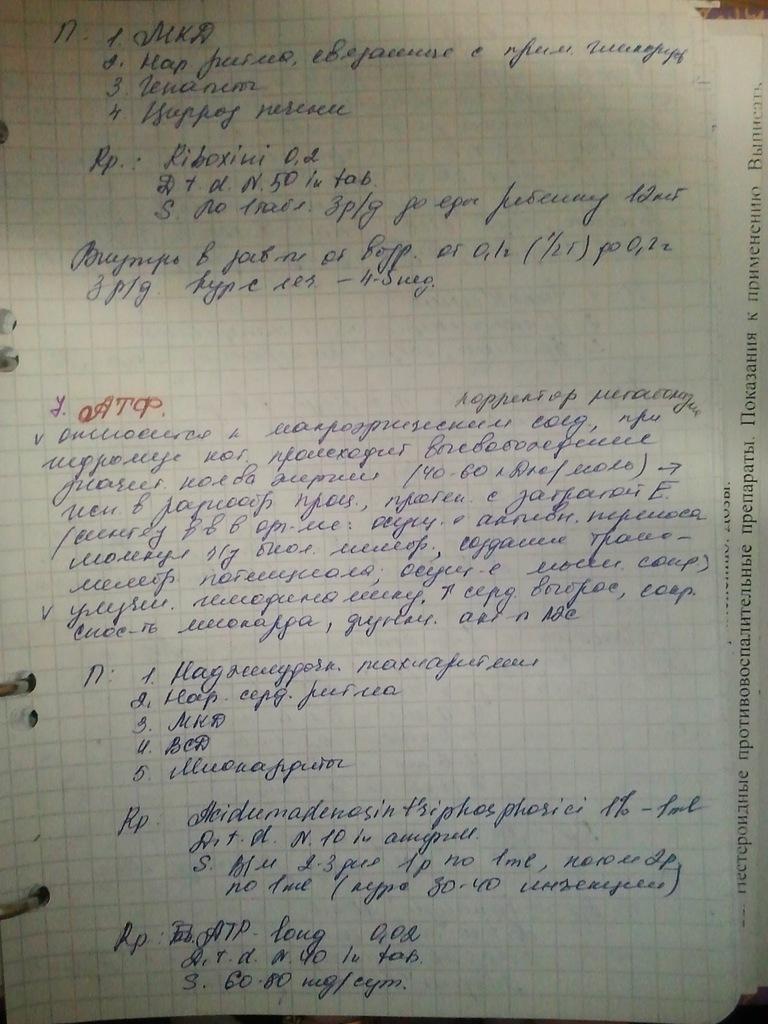 П. 1. МКД
2. Нар. ритма, связанные с прим. гликозидов
3. Гепатиты
4 Цирроз печени
Rp.: Riboxini 0,2
D. t. d. N. 50 in tab.
S. По 1 табл. 3 р/д до еды ребенку 12 лет
Внутрь в зав-ти от возр. от 0,1г (1/2т) до 0,2г
3 р/д. Курс леч. – 4-5 нед.
7. АТФ. корректор метаболизма
v относится к макроэргическим соед, при
гидролизе кот. происходит высвобождение
значит. кол-ва энергии (40-60 кДж/моль) →
исп. в разнообр проц., протек. с затратой Е.
(синтез в-в в орг-ме: осущ-е активн. переноса
молекул ч/з биол. мембр., создание транс-
мембр. потенциала; осущ-е мышц. сокр.)
v улучш. гемодинамику, ↑ серд. выброс, сокр.
спос-ть миокарда, функц. акт-ть
П: 1. Наджелудочк. тахиаритмии
2. Нар. серд. ритма
3. МКД
4. ВСД
5. Миокардиты
Rp. Acidum adenosintriphosphorici 1% – 1 ml
D. t. d. N. 10 in ampull.
S. В/м 2-3 дня 1р по 1 ml, потом 2р
по 1 ml (курс 30-40 инъекций)
Rp.: Tab. ATP-long 0,02
D. t. d. N. 40 in tab.
S. 60-80 mg/сут.
нестероидные противовоспалительные препараты. Показания к применению Выписать
дозы.